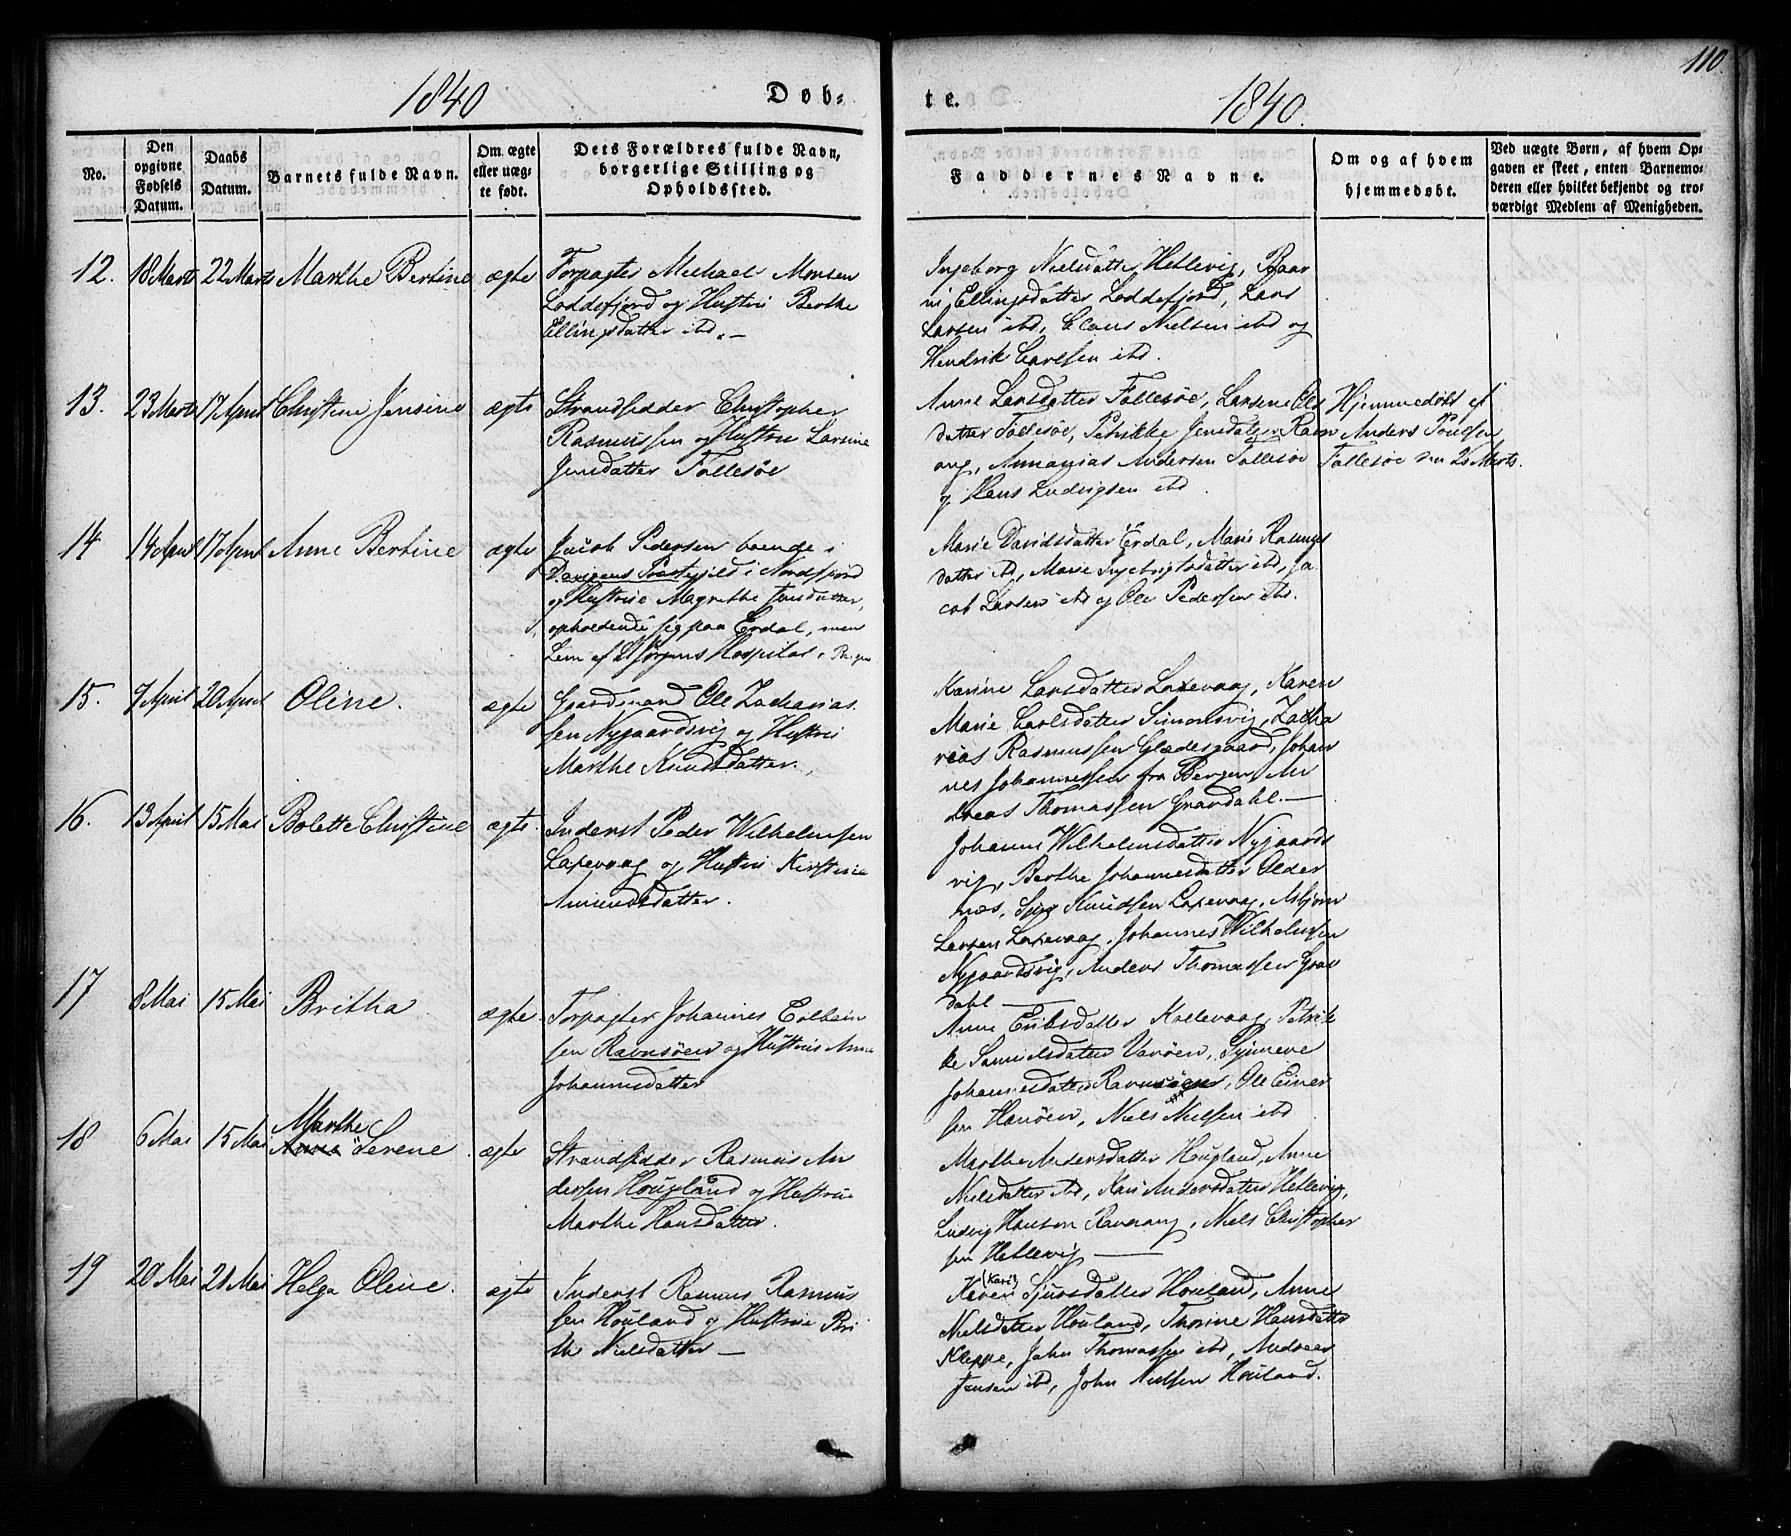 110.
1840 Døb-
te. 1840.
No.
Den opgivne Fødsels Datum.
Daabs Datum.
Barnets fulde Navn.
Om ægte eller uægte født.
Dets Forældres fulde Navn, borgerlige Stilling og Opholdssted.
Faddernes Navne.
Om og af hvem hjemmedøbt.
Ved uægte Børn, af hvem Opgaven er skeet, enten Barnemoderen eller hvilket bekjendt og troværdigt Medlem af Menigheden.
12. 18 Marts 22 Marts Marthe Bertine ægte
Forpagter Michael Monsen
Loddefjord og Hustrue Berthe
Ellingsdatter ibd. —
Ingeborg Nielsdatter Hetlevig, Baar
ni Ellingsdatter Loddefjord, Lars
Larsen ibd, Claus Nielsen ibd og
Hendrik Carlsen ibd.
13. 23 Marts 17 April Christine Jensine ægte
Strandsidder Christopher
Rasmussen og Hustrue Larsine
Jensdatter Follesøe
Anne Larsdatter Follesøe, Larsine Ols
datter Follesøe, Petrikke Jensdatter Ravn
ang, Annanias Andersen Follesøe
og Hans Ludvigsen ibd.
Hjemmedøbt af
Anders Poulsen
Follesøe den 25 Marts.
14 14 April 17 April Anne Bertine ægte
Jacob Pedersen boende i
Davigens Præstegjeld i Nordfjord
og Hustrue Magrethe Jensdatter,
opholdende sig paa Erdal, men
Lem af St Jørgens Hospital i Bergen
Marie Davidsdatter Erdal, Marie Rasmus
datter ibd, Marie Ingebrigtsdatter ibd, Ja
cob Larsen ibd og Ole Pedersen ibd.
15. 7 April 20 April Oline. ægte
Gaardmand Ole Zacharias
sen Nygaardsvig og Hustrue
Marthe Knudsdatter.
Karine Larsdatter Laxevaag, Karen
Marie Carlsdatter Simonsvig, Zacha
rias Rasmussen Gladesgaard, Johan
nes Johannessen fra Bergen, An
dreas Thomassen Gravdahl. —
16. 13 April 15 Mai Bolette Christine ægte.
Inderst Peder Wilhelmsen
Laxevaag og Hustrue Kirstine
Amundsdatter.
Johanne Wilhelmsdatter Nygaards
vig, Berthe Johannesdatter Alder
næs, Knudsen Laxevaag, Asbjørn
Larsen Laxevaag, Johannes Wilhelmsen
Nygaardsvig, Anders Thomassen Grav
dahl —
17 8 Mai 15 Mai Britha ægte
Forpagter Johannes Colbein
sen Ravnsøen og Hustrue Anne
Johannesdatter
Anne Eriksdatter Kollevaag, Petrik
ke Samuelsdatter Varøen, Synneve
Johannesdatter Ravnsøen, Ole Einer
sen Hanøen, Niels Nielsen ibd
18 6 Mai 15 Mai Marthe
Anne Serene ægte
Strandsidder Rasmus An
dersen Hougland og Hustrue
Marthe Hansdatter.
Marthe Andersdatter Hougland, Anne
Nielsdatter ibd, Kari Andersdatter Hetlevig,
Ludvig Hansen Ravnang, Niels Christopher
sen Hetlevig —
19 20 Mai 21 Mai Helga Oline. ægte
Inderst Rasmus Rasmus
sen Houland og Hustrue Bri
the Nielsdatter —
(Kari)
Karen Sjursdatter Houland, Anne
Nielsdatter Houland, Thorine Hansdatter
Kleppe, John Thomassen ibd, Andreas
Jensen ibd, John Nielsen Houland.